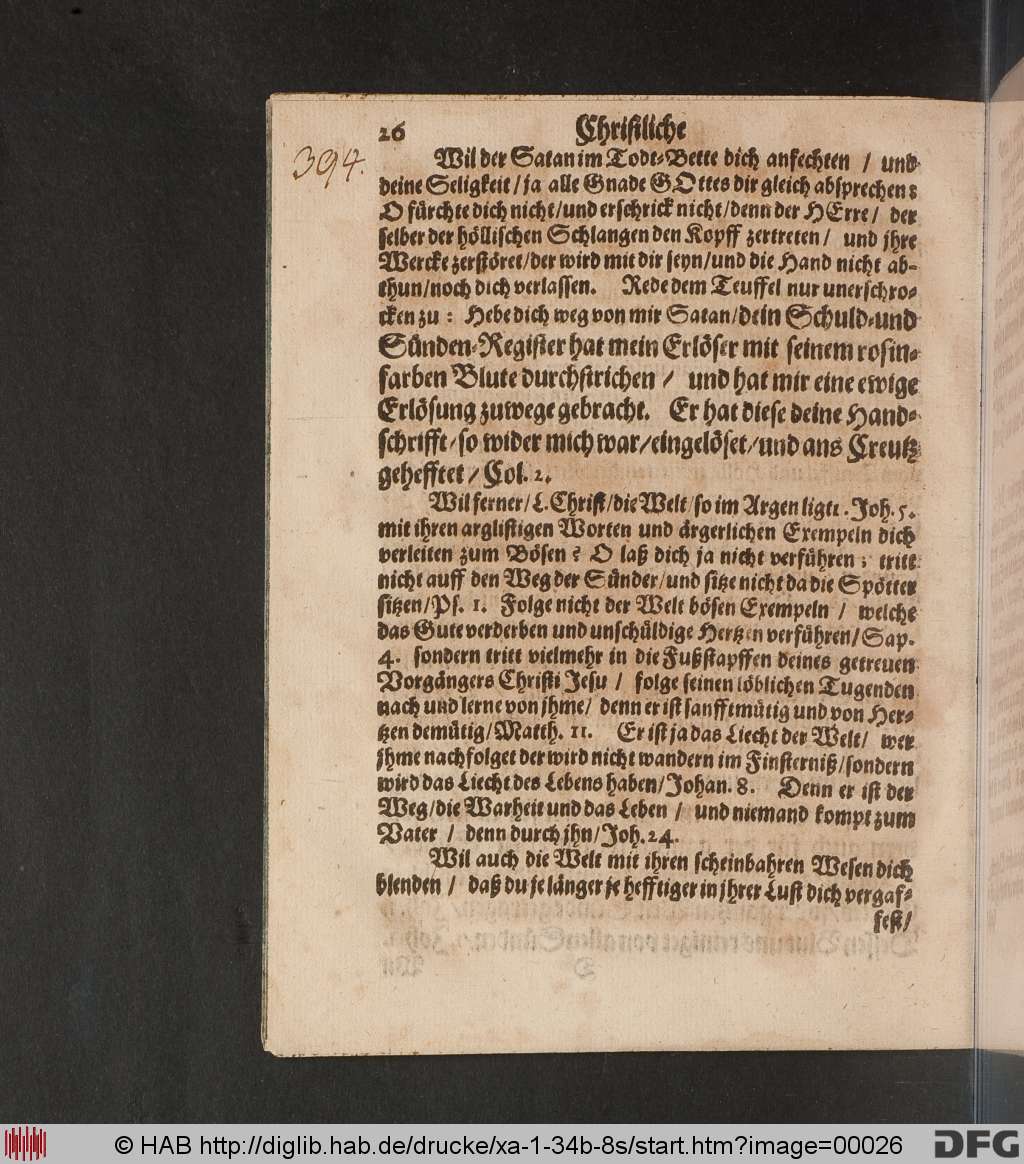 26 Christliche
394.
Wil der Satan im Todt-Bette dich anfechten / und
deine Seligkeit / ja alle Gnade GOttes dir gleich absprechen:
O fürchte dich nicht / und erschrick nicht / denn der HErre / der
selber der höllischen Schlangen den Kopff zertreten / und jhre
Wercke zerstöret / der wird mit dir seyn / und die Hand nicht ab-
thun / noch dich verlassen. Rede dem Teuffel nur unerschro-
cken zu : Hebe dich weg von mir Satan / dein Schuld-und
Sünden-Register hat mein Erlöser mit seinem rosin-
farben Blute durchstrichen / und hat mir eine ewige
Erlösung zuwege gebracht. Er hat diese deine Hand-
schrifft / so wider mich war / eingelöset / und ans Creutz
gehefftet / Col. 2.
Wil ferner / L. Christ / die Welt / so im Argen ligt 1. Joh. 5.
mit ihren arglistigen Worten und ärgerlichen Exempeln dich
verleiten zum Bösen? O laß dich ja nicht verführen; tritt
nicht auff den Weg der Sünder / und sitze nicht da die Spötter
sitzen / Ps. 1. Folge nicht der Welt bösen Exempeln / welche
das Gute verderben und unschüldige Hertzen verführen / Sap.
4. sondern tritt vielmehr in die Fußstapffen deines getreuen
Vorgängers Christi Jesu / folge seinen löblichen Tugenden
nach und lerne von jhme / denn er ist sanfftmütig und von Her-
tzen demütig / Matth. 11. Er ist ja das Liecht der Welt / wer
jhme nachfolget der wird nicht wandern im Finsterniß / sondern
wird das Liecht des Lebens haben / Johan. 8. Denn er ist der
Weg / die Warheit und das Leben / und niemand kompt zum
Vater / denn durch jhn / Joh. 24.
Wil auch die Welt mit ihren scheinbahren Wesen dich
blenden / daß du je länger je hefftiger in jhrer Lust dich vergaf-
fest /
© HAB http://diglib.hab.de/drucke/xa-1-34b-8s/start.htm?image=00026 DFG